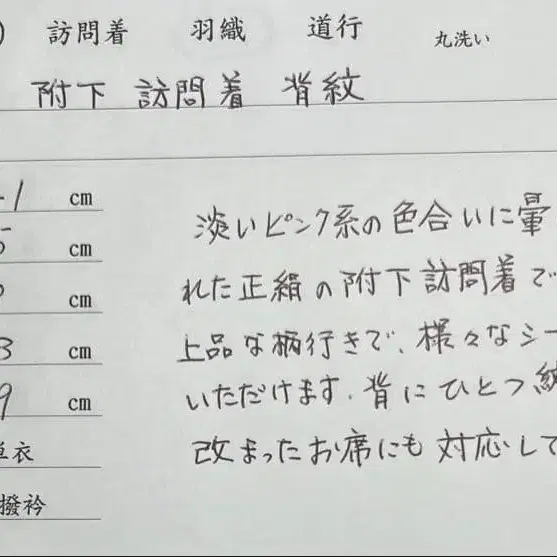 ) 訪問着 羽織 道行 丸洗い
附下 訪問着 背紋
1 cm
cm
cm
3 cm
9 cm
単衣
撥衿
淡いピンク系の色合いに暈
れた正絹の附下訪問着で
上品な柄行きで、様々なシー
いただけます。背にひとつ紋
改まったお席にも対応して